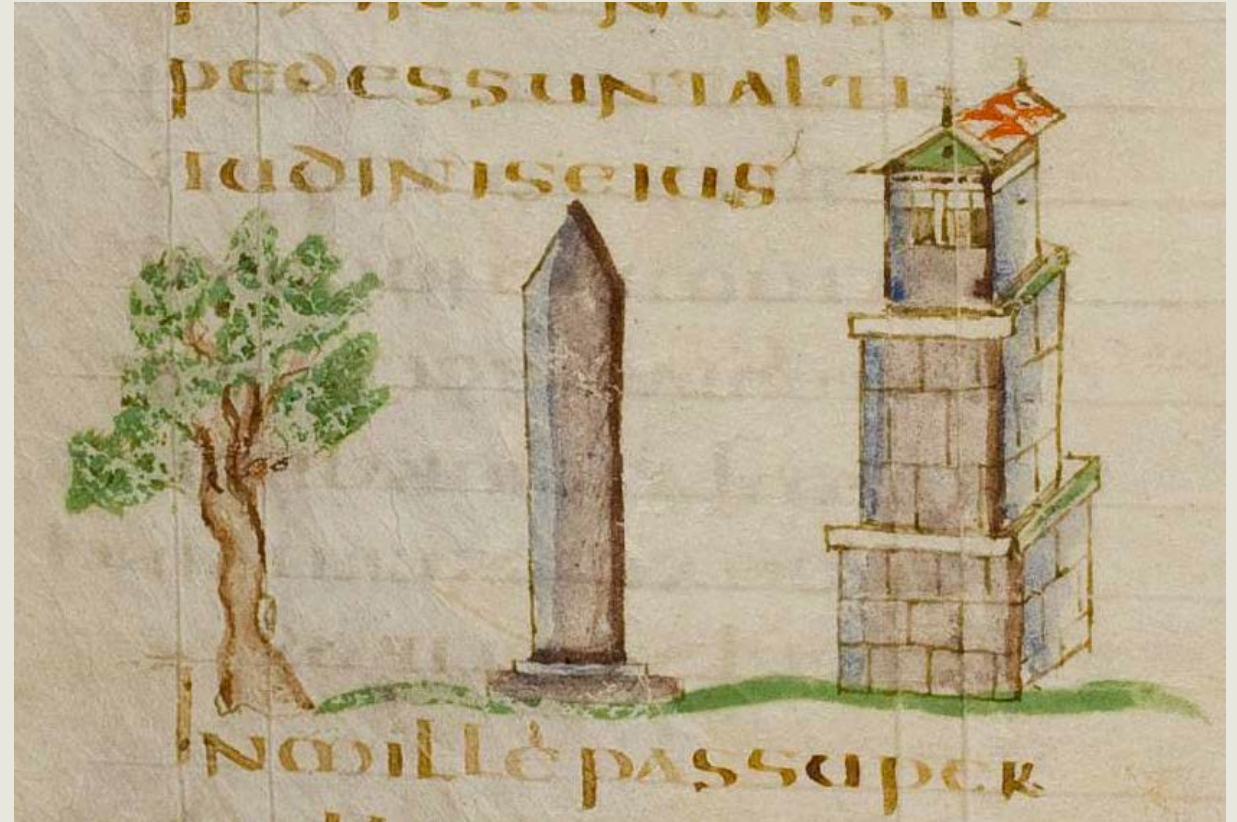 pedessuntalti
tudiniseius
Inmillepassuper